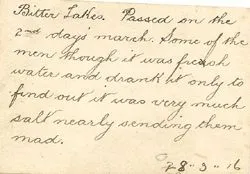 Bitter Lakes. Passed on the
2nd days' march. Some of the
men though it was fresh
water and drank it only to
find out it was very much
salt nearly sending them
mad.
28".3".16